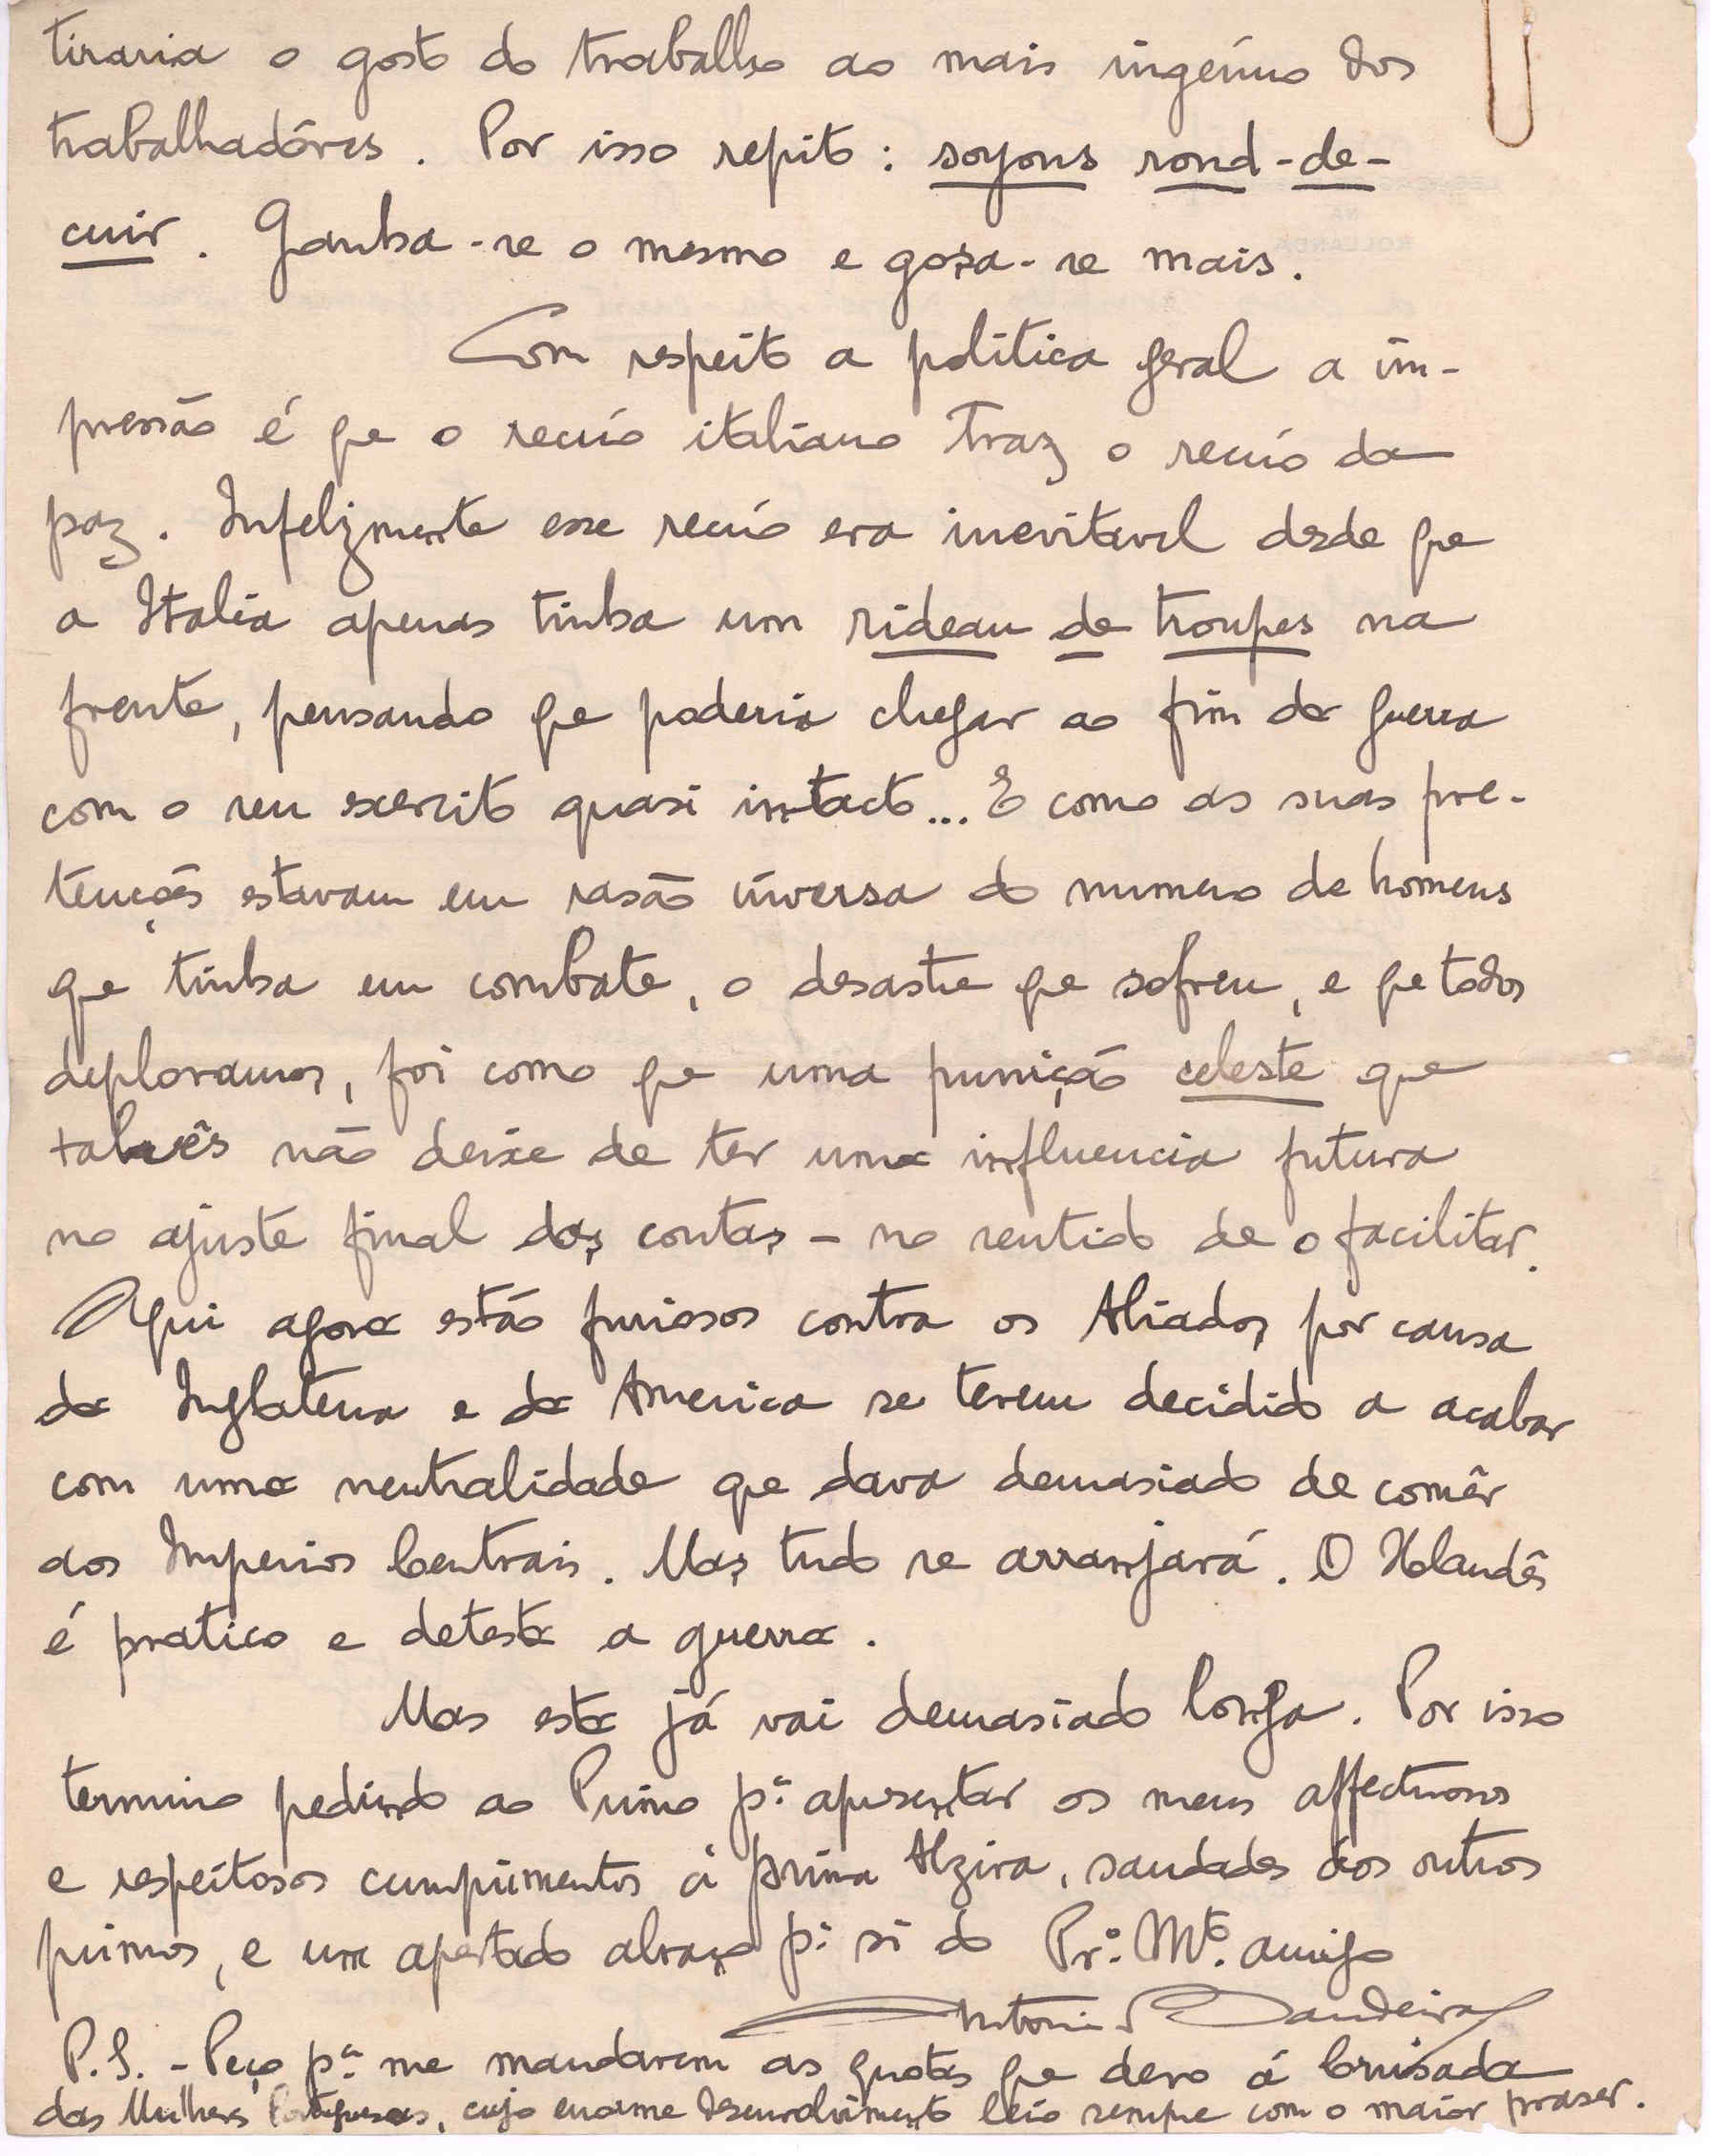 tiraria o gosto do trabalho ao mais ingénuo dos
trabalhadôres. Por isso repito: soyons rond-de-
cuir. Ganha-se o mesmo e gosa-se mais.
Com respeito a politica geral a im-
pressão é que o recúo italiano traz o recúo da
paz. Infelizmente esse recúo era inevitavel desde que
a Italia apenas tinha um rideau de troupes na
frente, pensando que poderia chegar ao fim da guerra
com o seu exercito quasi intacto... E como as suas pre-
tenções estavam em rasão inversa do numero de homens
que tinha em combate, o desastre que sofreu, e que todos
deploramos, foi como que uma punição celeste que
talvês não deixe de ter uma influencia futura
no ajuste final das contas - no sentido de o facilitar.
Aqui agora estão furiosos contra os Aliados por causa
da Inglaterra e da America se terem decidido a acabar
com uma neutralidade que dava demasiado de comêr
aos Imperios Centrais. Mas tudo se arranjará. O Holandês
é pratico e detesta a guerra.
Mas esta já vai demasiado longa. Por isso
termino pedindo ao Primo pª. apresentar os meus affectuosos
e respeitosos cumprimentos á prima Alzira, saudades aos outros
primos, e um apertado abraço pª. si do Prº. Mtº. amigo
Antonio Bandeira
P.S. - Peço pª. me mandarem as quotas que devo á Crusada
das Mulheres Portuguesas, cujo enorme desenvolvimento leio sempre com o maior praser.